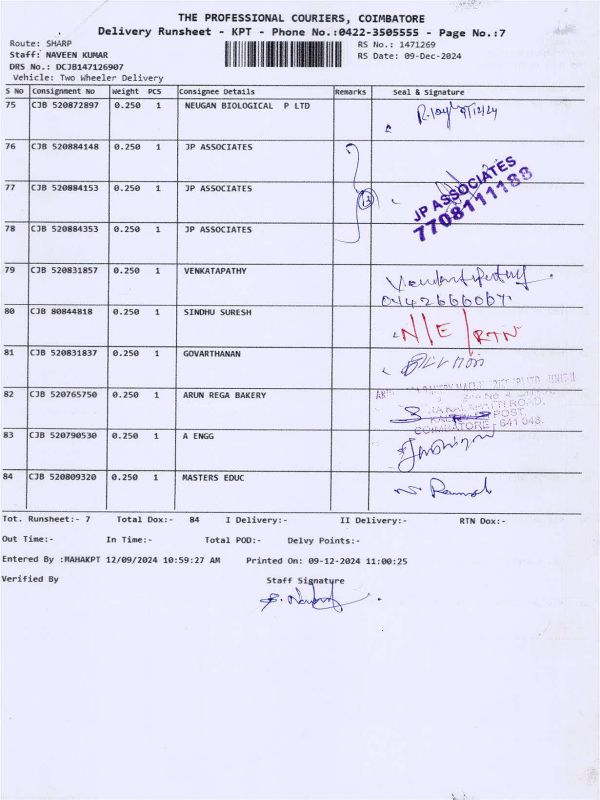 THE PROFESSIONAL COURIERS, COIMBATORE
Delivery Runsheet - KPT - Phone No.:0422-3505555 - Page No.:7
Route: SHARP
Staff: NAVEEN KUMAR
DRS No.: DCJB147126907
Vehicle: Two Wheeler Delivery
RS No.: 1471269
RS Date: 09-Dec-2024
S No Consignment No Weight PCS Consignee Details Remarks Seal & Signature
75 CJB 520872897 0.250 1 NEUGAN BIOLOGICAL P LTD 9/12/24
76 CJB 520884148 0.250 1 JP ASSOCIATES
77 CJB 520884153 0.250 1 JP ASSOCIATES
JP ASSOCIATES
7708111188
78 CJB 520884353 0.250 1 JP ASSOCIATES
79 CJB 520831857 0.250 1 VENKATAPATHY
80 CJB 80844818 0.250 1 SINDHU SURESH N/E/RTN
81 CJB 520831837 0.250 1 GOVARTHANAN
82 CJB 520765750 0.250 1 ARUN REGA BAKERY
POST,
COIMBATORE - 641 048.
83 CJB 520790530 0.250 1 A ENGG
84 CJB 520809320 0.250 1 MASTERS EDUC
Tot. Runsheet:- 7 Total Dox:- 84 I Delivery:- II Delivery:- RTN Dox:-
Out Time:- In Time:- Total POD:- Delvy Points:-
Entered By :MAHAKPT 12/09/2024 10:59:27 AM Printed On: 09-12-2024 11:00:25
Verified By Staff Signature